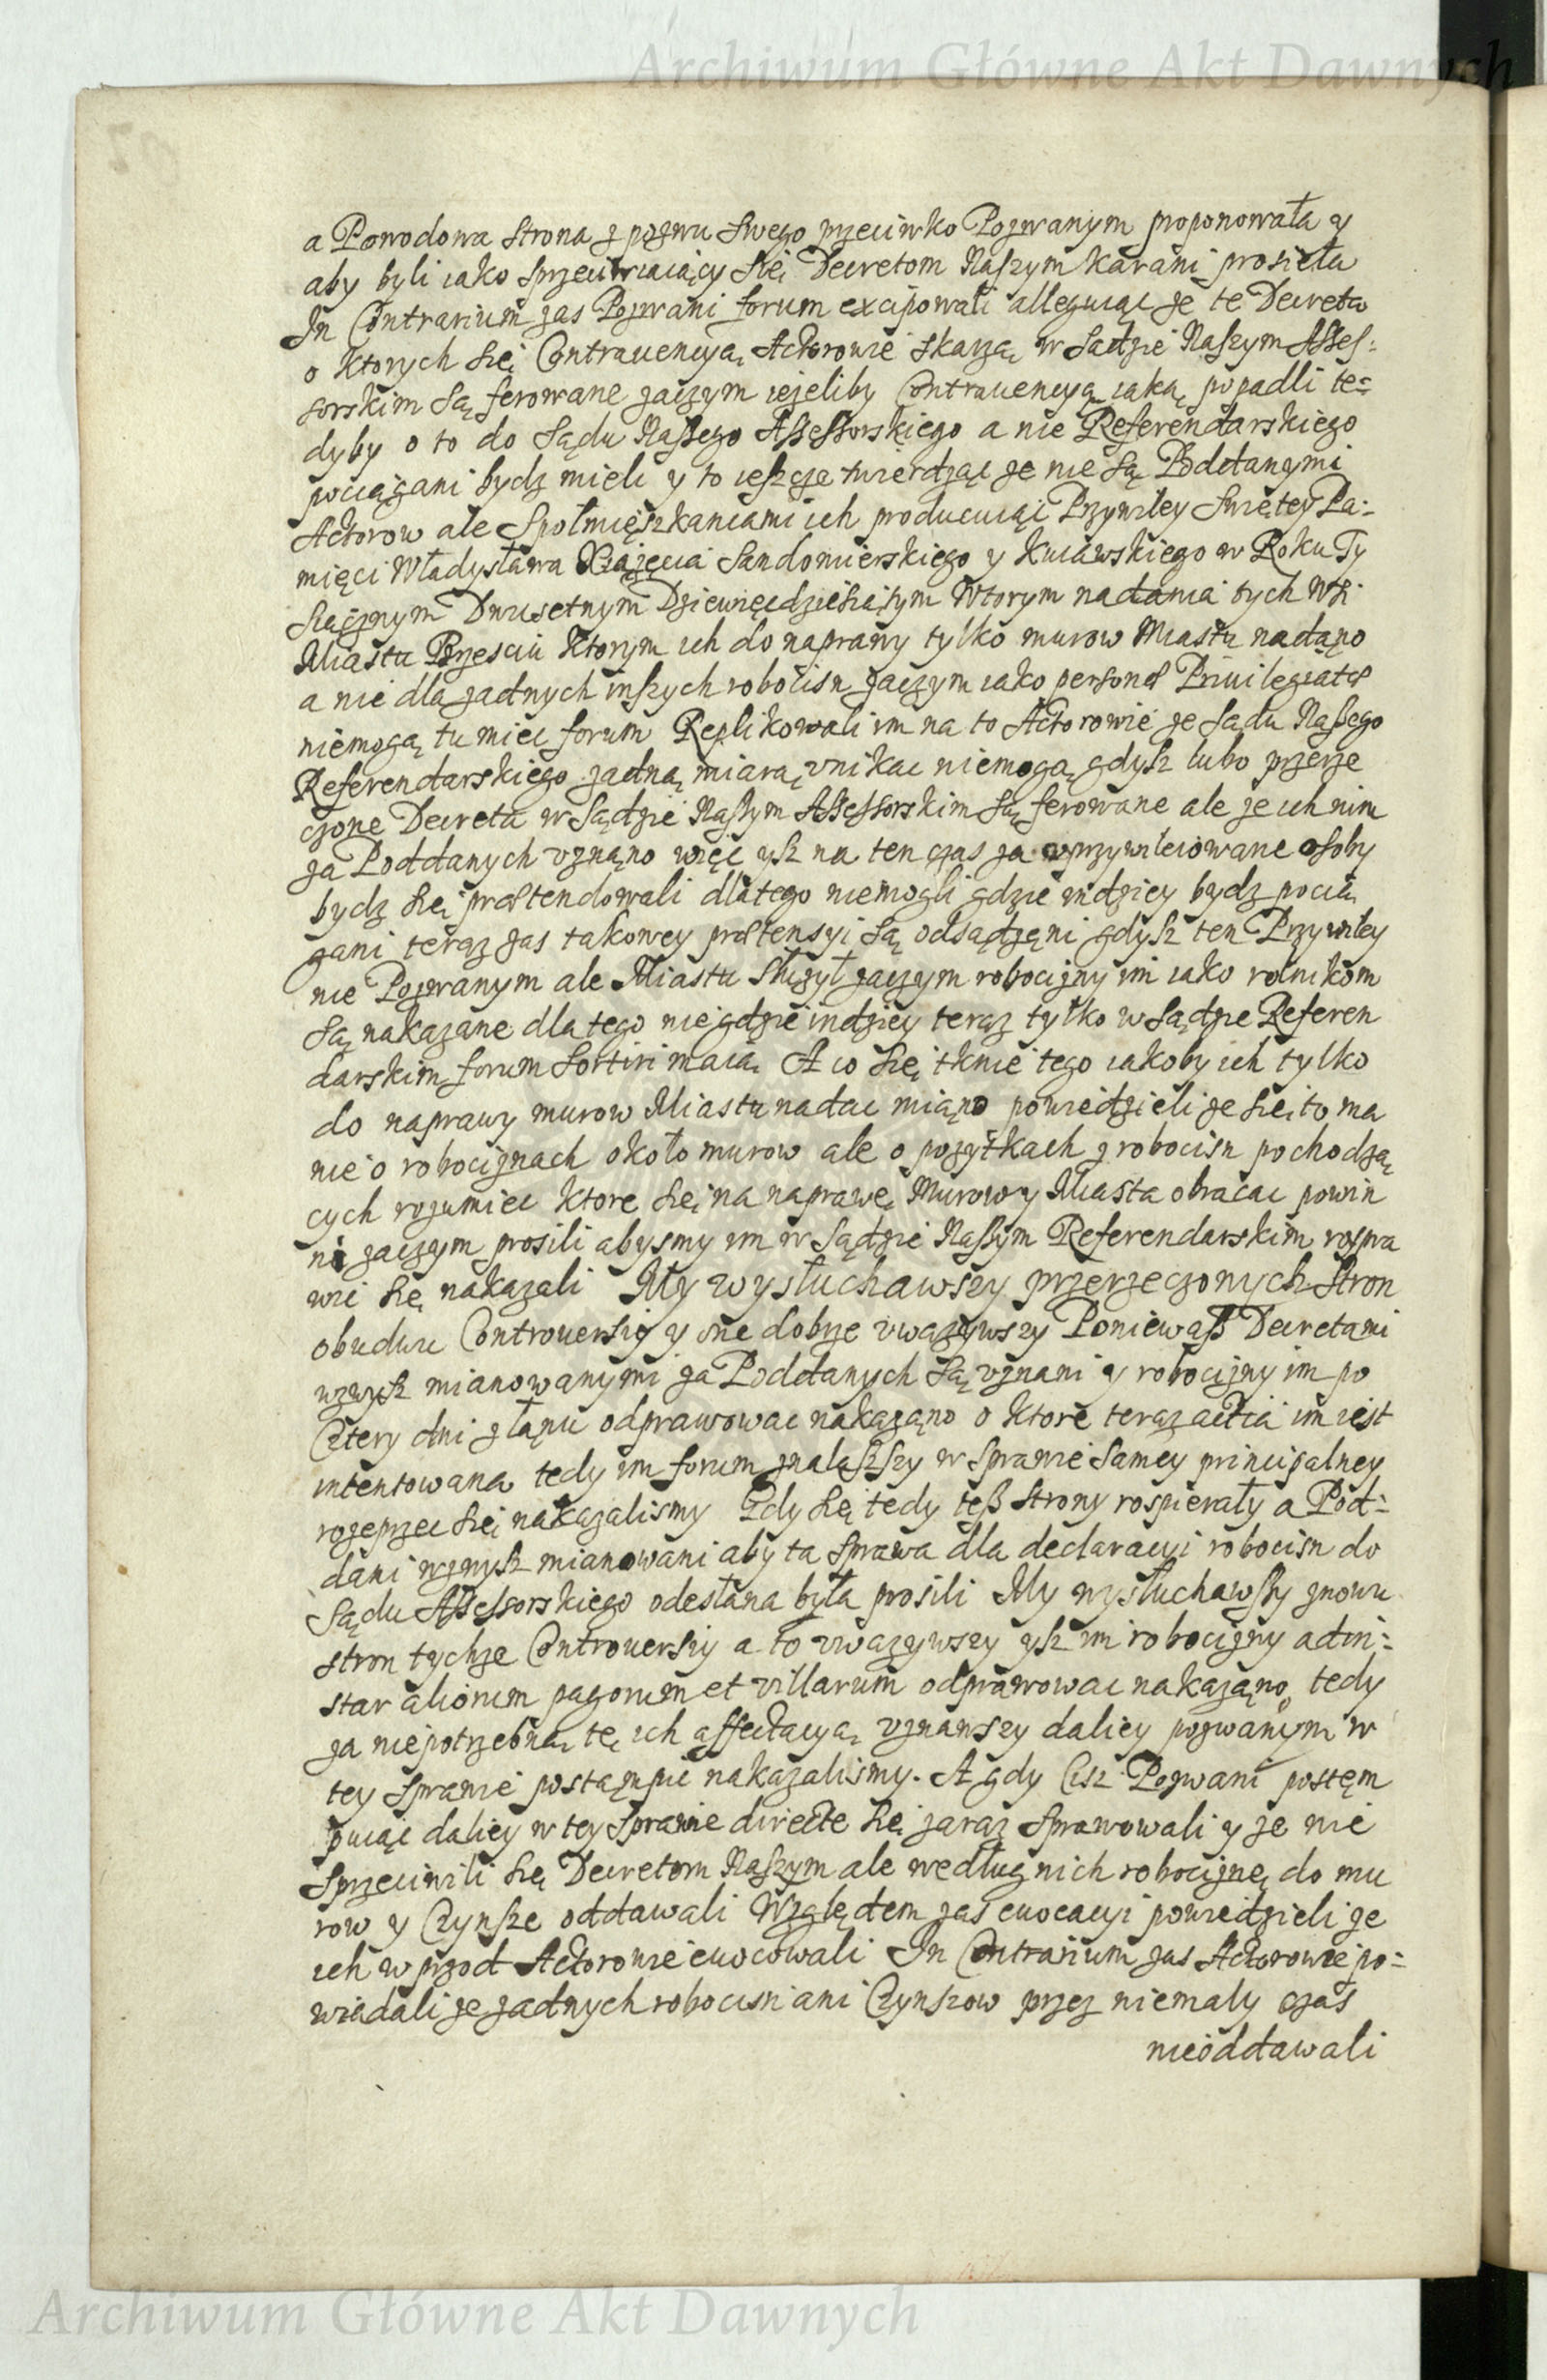 Archiwum Główne Akt Dawnych
a Powodowa Strona z pozwu Swego przeciwko Pozwanym proponowała y
aby byli iako Sprzeciwiaiący Się Decretom Naszym karani prosieła
In Contrarium zas Pozwani forum excipowali alleguiąc ze te Decreta
o ktorych Się Contrauencyą Actorowie skarzą w Sadzie Naszym Asses:
sorskim Są ferowane zaczym iezeliby Contrauencyą iaką popadli te=
dyby o to do Sądu Naszego Assessorskiego a nie Referendarskiego
pociągani bydz mieli y to ieszcze twierdząc ze nie Są Poddanymi
Actorow ale Społmięszkancami ich producuiąc Przywiley Swiętey Pa:
mięci Władysława Xiąząęcia Sandomierskiego y Kuiawskiego w Roku Ty
Siącznym Dwusetnym Dziewięcdziesiątym Wtorym nadania tych Wsi
Miastu Brzesciu ktorym ich do naprawy tylko murow Miastu nadano
a nie dla zadnych inszych robocisn zaczym iako personæ Priuilegiatæ
niemogą tu miec forum Replikowali im na to Actorowie ze Sądu Naszego
Referendarskiego zadną miarą vnikac niemogą gdysz lubo przerze
czone Decreta w Sądzie Naszym Assessorskim Są ferowane ale ze ich nim
za Poddanych vznąno więc ysz na ten czas za vprzywileiowane osoby
bydz Się prætendowali dlatego niemogli gdzie indziey bydz pocią
gani teraz zas takowey prætensyi Są odsądzeni gdysz ten Przywiley
nie Pozwanym ale Miastu Słuzył zaczym robocizny im iako rolnikom
Są nakazane dla tego nie gdzie indziey teraz tylko w Sądzie Referen
darskim forum Sortiri maią A co Się tknie tego iakoby ich tylko
do naprawy murow Miastu nadac miano powiedzieli ze Się to ma
nie o robociznach około murow ale o pozytkach z robocisn pochodzą
cych rozumiec ktore Się na naprawę Murow y Miasta obracac powin
ni zaczym prosili abysmy im w Sądzie Naszym Referendarskim rospra
wic Się nakazali My wysłuchawszy przerzeczonych Stron
obudwu Controuersiy y one dobrze vwazywszy Poniewasz Decretami
wzwysz mianowanymi za Poddanych Są vznani y robocizny im po
Cztery dni z łanu odprawowac nakazano o ktore teraz actia im iest
intentowana tedy im forum znalaszszy w Sprawie Samey principalney
rozeprzec Się nakazalismy Gdy Się tedy tesz Strony rospierały a Pod=
dani wzwysz mianowani aby ta Sprawa dla declaracyi robocisn do
Sądu Assessorskiego odesłana była prosili My wysłuchawszy znowu
stron tychze Controuersiy a to vwazywszy ysz im robocizny ad in=
star aliorum pagorum et villarum odprawowac nakazano, tedy
za niepotrzebną tę ich affectacyą vznawszy daliey pozwanym w
tey Sprawie postąmpic nakazalismy. A gdy Cisz Pozwani postęm
puiąc daliey w tey Sprawie directe Się zaraz Sprawowali y ze nie
Sprzeciwili Się Decretom Naszym ale według nich robociznę do mu
row y Czynsze oddawali Względem zas euocacyi powiedzieli ze
ich w przod Actorowie euocowali In Contrarium zas Actorowie po=
wiadali ze zadnych robocisn ani Czynszow przez niemaly czas
nieoddawali
Archiwum Główne Akt Dawnych